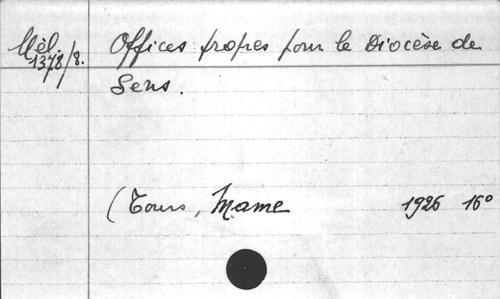 Mèl. Offices propres pour le Diocèse de
1378/8. Sens.
(Tours, Mame 1926 16°